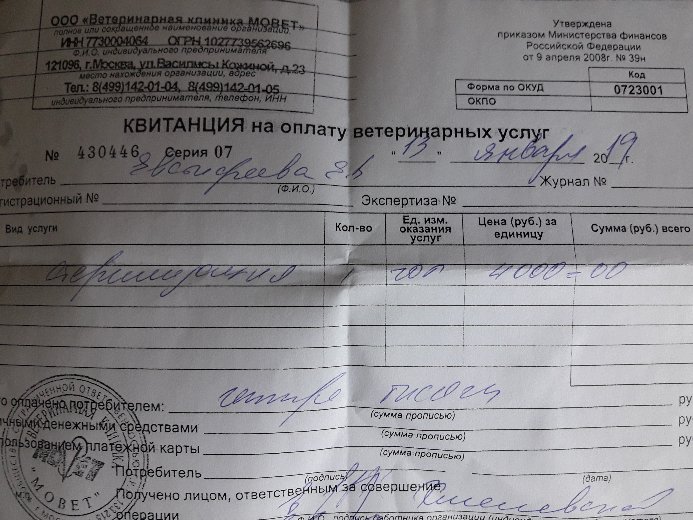 ООО «Ветеринарная клиника МОВЕТ»
полное или сокращенное наименование организации,
ИНН 7730004064 ОГРН 1027739562696
Ф.И.О. индивидуального предпринимателя
121096, г.Москва, ул.Василисы Кожиной, д.23
место нахождения организации, адрес
Тел.: 8(499)142-01-04, 8(499)142-01-05
индивидуального предпринимателя, телефон, ИНН
Утверждена
приказом Министерства финансов
Российской Федерации
от 9 апреля 2008г. № 39н
Код
Форма по ОКУД 0723001
ОКПО
КВИТАНЦИЯ на оплату ветеринарных услуг
№ 430446 Серия 07 "13" января 2019г.
требитель Журнал №
(Ф.И.О.)
гистрационный № Экспертиза №
Вид услуги Кол-во Ед. изм. оказания услуг Цена (руб.) за единицу Сумма (руб.) всего
стерилизация 1 4000=00
го оплачено потребителем: четыре тысячи ру
(сумма прописью)
ичными денежными средствами ру
(сумма прописью)
пользованием платежной карты ру
(сумма прописью)
Потребитель
(подпись) (дата)
Получено лицом, ответственным за совершение
операции
ВЕТЕРИНАРНАЯ КЛИНИКА
"МОВЕТ"